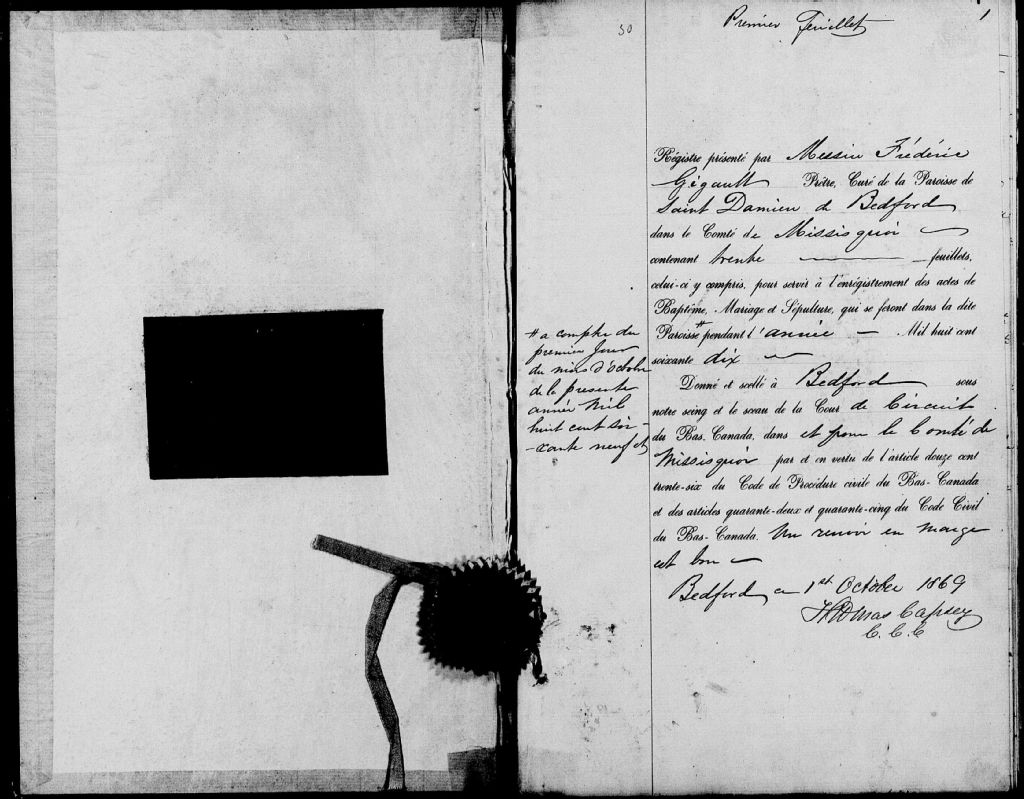 30
Premier Feuillet
1
Régistre présenté par Messire Fréderic
Gigault Prêtre, Curé de la Paroisse de
Saint Damien de Bedford
dans le Comté de Missisquoi
contenant trente feuillets,
celui-ci y compris, pour servir à l'enrégistrement des actes de
Baptême, Mariage et Sépulture, qui se feront dans la dite
Paroisse # pendant l'année Mil huit cent
soixante dix
# a compter du
premier Jour
du mois d'Octobre
de la presente
année Mil
huit cent soi-
-xante neuf et
Donné et scellé à Bedford sous
notre seing et le sceau de la Cour de Circuit
du Bas-Canada, dans et pour le Comté de
Missisquoi par et en vertu de l'article douze cent
trente-six du Code de Procédure civile du Bas-Canada
et des articles quarante-deux et quarante-cinq du Code Civil
du Bas-Canada. Un renvoi en marge
est bon
Bedford 1st October 1869
Thomas Capsey
C.C.C